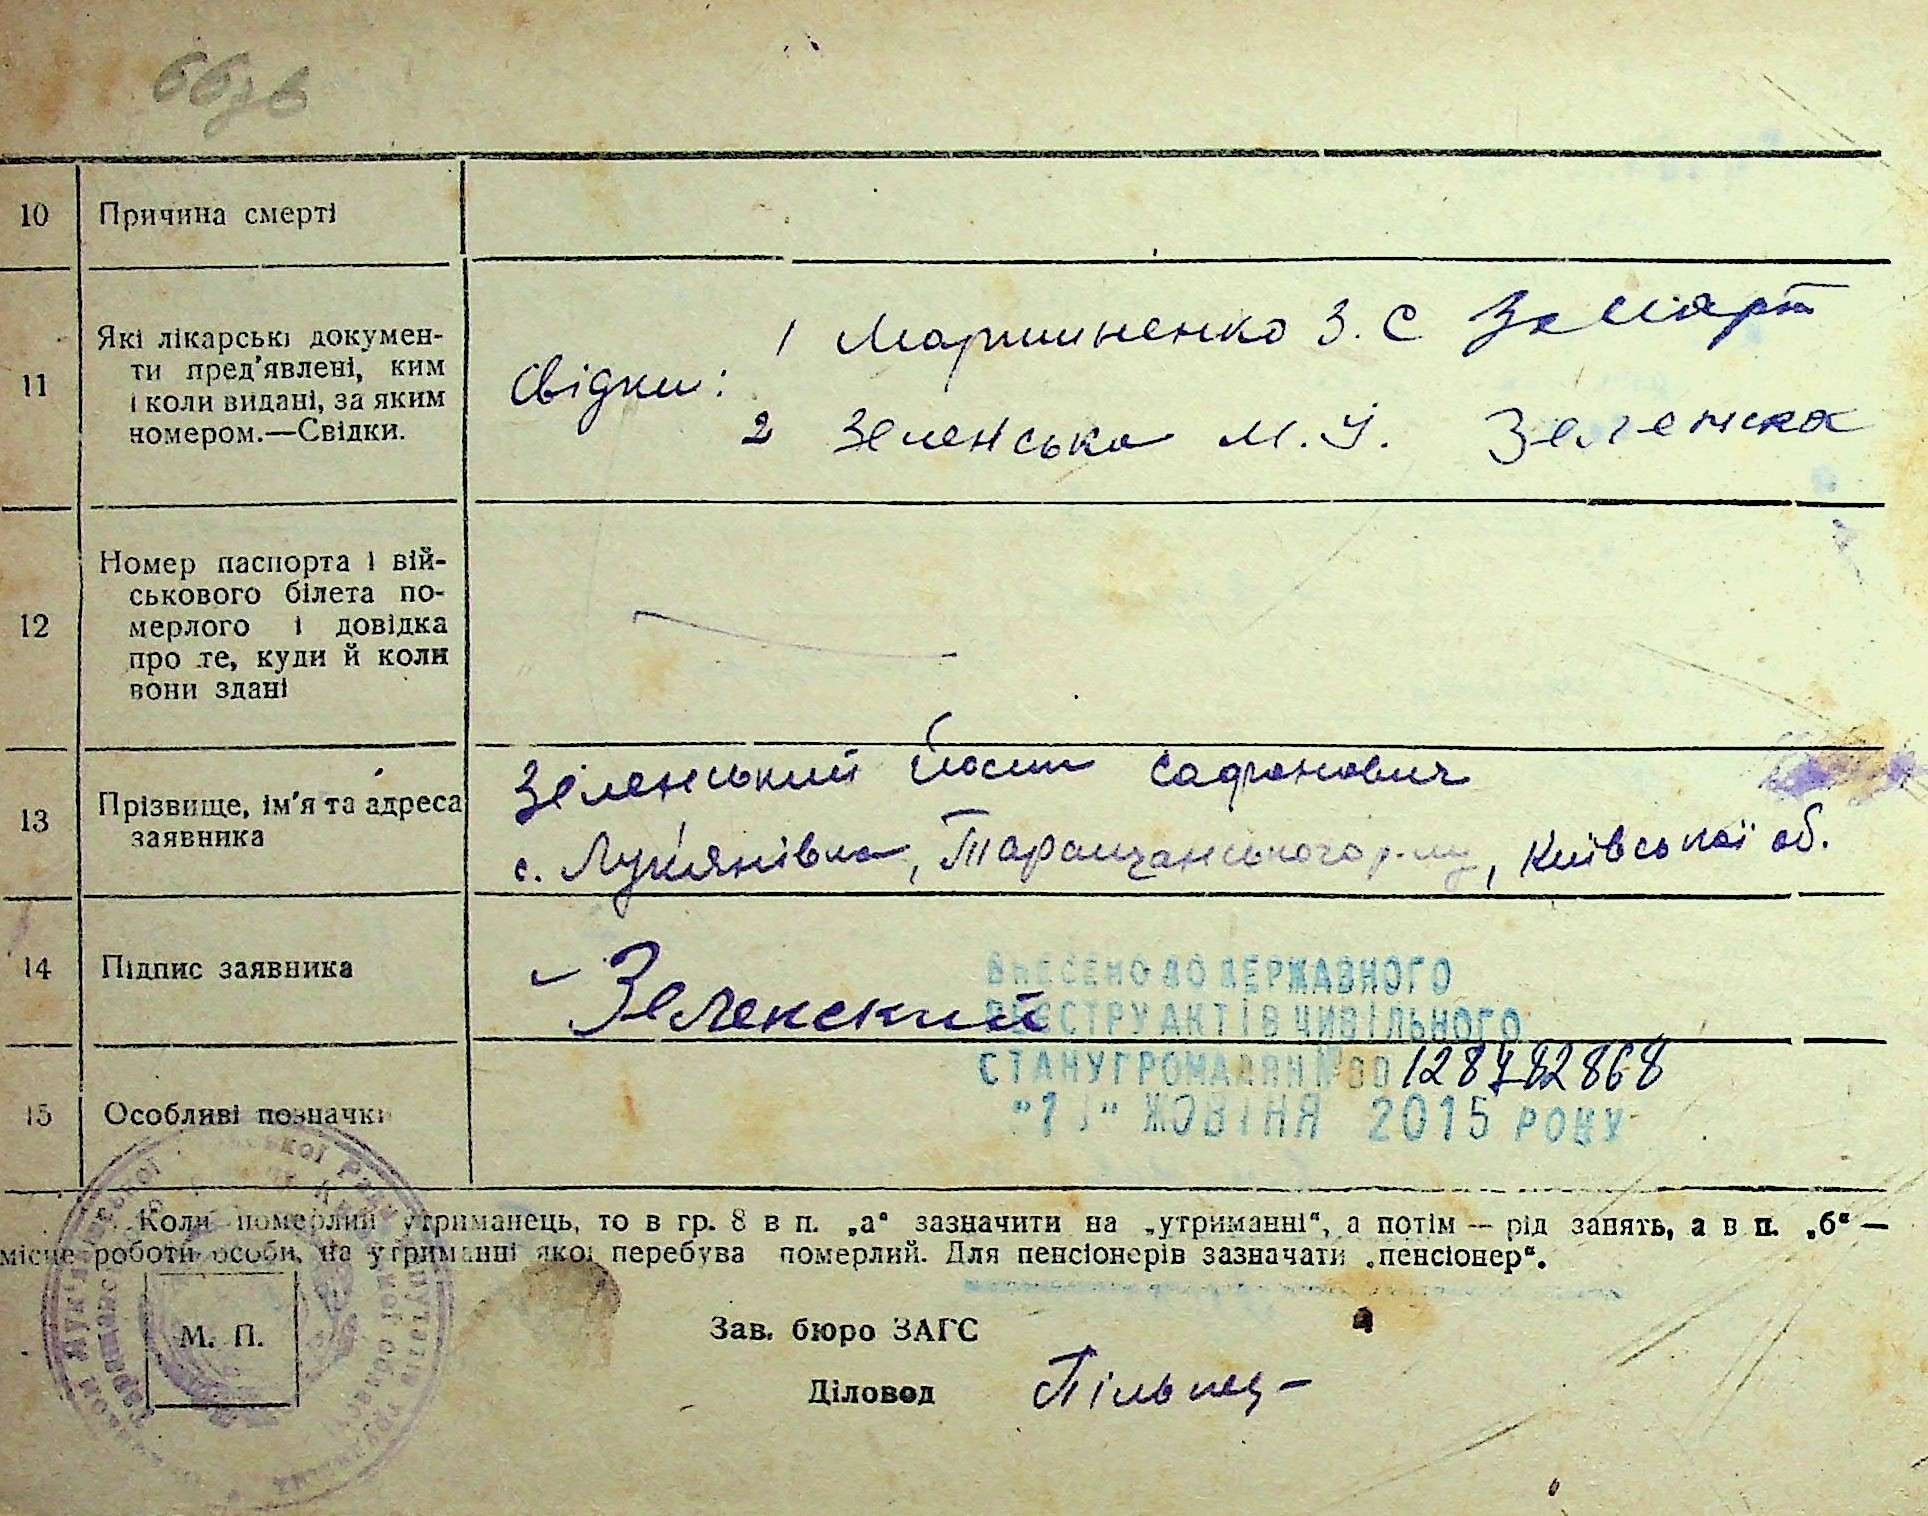 66зв
10 Причина смерті
11 Які лікарські докумен-
ти пред'явлені, ким
і коли видані, за яким
номером.—Свідки.
Свідки:
1 Мартиненко З. С ЗаМарт
2 Зеленська М. У. Зеленска
12 Номер паспорта і вій-
ськового білета по-
мерлого і довідка
про те, куди й коли
вони здані
13 Прізвище, ім'я та адреса
заявника
Зеленський Йосип Сафронович
с. Лук'янівка, Таращанського р-ну, Київської об.
14 Підпис заявника
Зеленский
ВНЕСЕНО ДО ДЕРЖАВНОГО
РЕЄСТРУ АКТІВ ЦИВІЛЬНОГО
СТАНУ ГРОМАДЯН № 00128782868
15 Особливі позначки
ЖОВТНЯ 2015 РОКУ
Коли померлий утриманець, то в гр. 8 в п. „а“ зазначити на „утриманні“, а потім — рід занять, а в п. „б“ —
місце роботи особи, на утриманні якої перебува померлий. Для пенсіонерів зазначати „пенсіонер“.
М. П.
Зав. бюро ЗАГС
Діловод